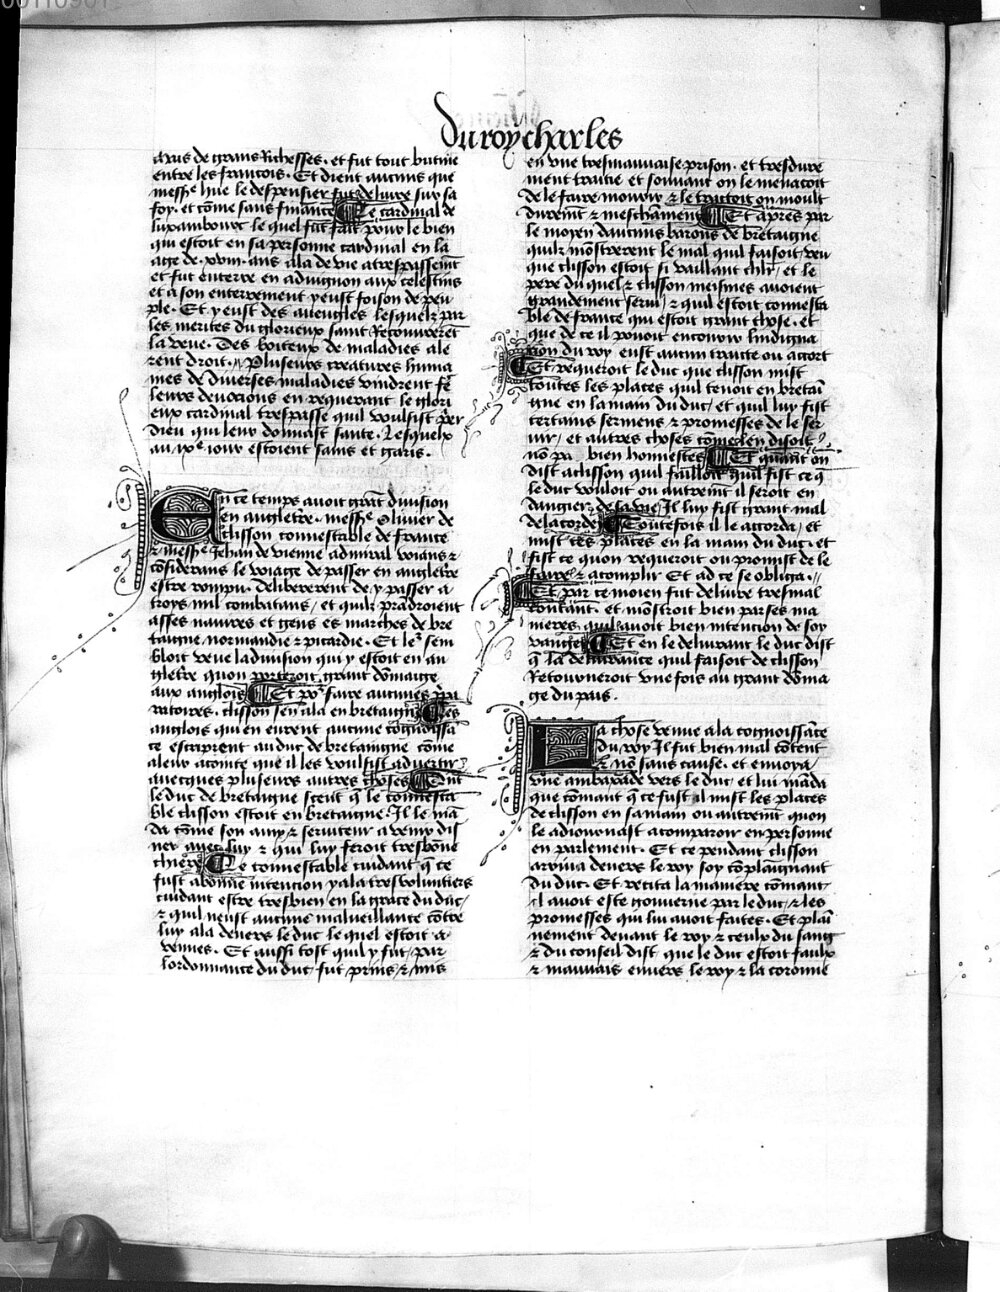 00110901
Du roy charles
avis de grans Richesses. et fut tout butine
entre les francois. Et dient aucuns que
messe hue le despensier fut deliure sur sa
foy. et cõme sans finance Le cardinal de
luxambourc le quel fut fait pour le bien
qui estoit en sa personne cardinal en la
age de .xviii. ans ala de vie a trespassemẽt
et fut enterre en aduignon aux celestins
et a son enterrement y eust foison de peu
ple. Et y eust des aueugles lesquelz par
les merites du glorieux saint Recouurerẽt
la veue. Des boiteux de maladies ale
rent droit. Plusieurs creatures huma
mes de diuerses maladies vindrent fẽ
leurs deuocions en requerant le glori
eux cardinal trespasse quil voulsist p̃er
dieu qui leur donnast sante. Lesquelx
au ixe iour estoient sains et garis.
En ce temps auoit grãt diuision
en anglet̃re. messe Oliuier de
clisson connestable de france
⁊ messe Jehan de vienne admiral voiãns ⁊
cõsiderans le voiage de passer en anglet̃re
estre rompu. delibererent de y passer a
troys mil combatans / et quilz prãdroient
asses nauires et gens es marches de bre
taigne normandie ⁊ picardie. Et les sem
bloit veue la diuision qui y estoit en an
glet̃re quon porteroit grant dõmaige
aux anglois Et po² faire aucunes p̃pa
ratoires. clisson sen ala en bretaigne Les
anglois qui en eurent aucune cognoissã
ce escriprent au duc de bretaingne cõme
a leur aconite que il les voulsist aduertir
auecques plusieurs autres choses Et dut
le duc de bretaigne sceut q̃ le connesta
ble clisson estoit en bretaigne. Il le mã
da cõme son amy ⁊ seruiteur a venir dis
ner auec luy ⁊ qui luy feroit tresbõne
chiere Le connestable cuidant q̃ ce
fust a bonne intencion y ala tresvoluntiers
cuidant estre tresbien en la grace du duc /
⁊ quil neust aucune malueillance cõtre
luy ala deuers le duc le quel estoit a
vennes. Et aussi tost quil y fut / par
lordonnance du duc / fut prins / ⁊ mis
en vne tresmauuaise prison. et tresdure
ment traitie et souuant on le menacoit
de le faire mourir / ⁊ le traictoit on moult
durem̃t ⁊ meschamm̃t Et apres par
le moyen daucuns barons de bretaigne
quilz mõstrerent le mal quil faisoit / veu
que clisson estoit si vaillant chlr̃ / et le
pere du quel ⁊ clisson meismes auoient
grandement serui / ⁊ quil estoit connesta
ble de france qui estoit grant chose. et
que de ce il pouoit encourir lindigna
cion du roy eust aucun traitie ou accort
Et requeroit le duc que clisson mist
toutes les places quil tenoit en bretai
gne en la main du duc / et quil luy fist
certains sermens ⁊ promesses de le ser
uir / et autres choses cõme len disoit
nõ pa bien honnestes Et quãnt on
dist a clisson quil failloit quil fist ce q̃
le duc vouloit ou autrem̃t il seroit en
dangier de sa vie. Il luy fist grant mal
de lacorder Toutefois il le accorda / et
mist ces places en la main du duc. et
fist ce quon requeroit ou promist de le
faire ⁊ acomplir Et ad ce se obliga.
Et par ce moien fut deliure tresmal
contant. et mõstroit bien par ses ma
nieres quil auoit bien intencion de soy
vangier Et en le deliurant le duc dist
q̃ la deliurance quil faisoit de clisson
Retourneroit vne fois au grant dõma
ge du pais.
La chose venue a la cognoissãce
du roy Il fut bien mal cõtent
⁊ nõ sans cause. et enuoya
vne ambaxade vers le duc et lui mãda
que cõmant q̃ ce fust il mist les places
de clisson en sa main ou autrem̃t quon
le adiournast a comparoir en personne
en parlement. Et ce pendant clisson
arriua deuers le roy soy cõplaignant
du duc. Et recita la maniere cõmant
il auoit este gouuerne par le duc / ⁊ les
promesses qui lui auoit faites. Et plai
nement deuant le roy ⁊ ceulx du sang
⁊ du conseil dist que le duc estoit faulx
⁊ mauuais enuers le roy ⁊ la coronne